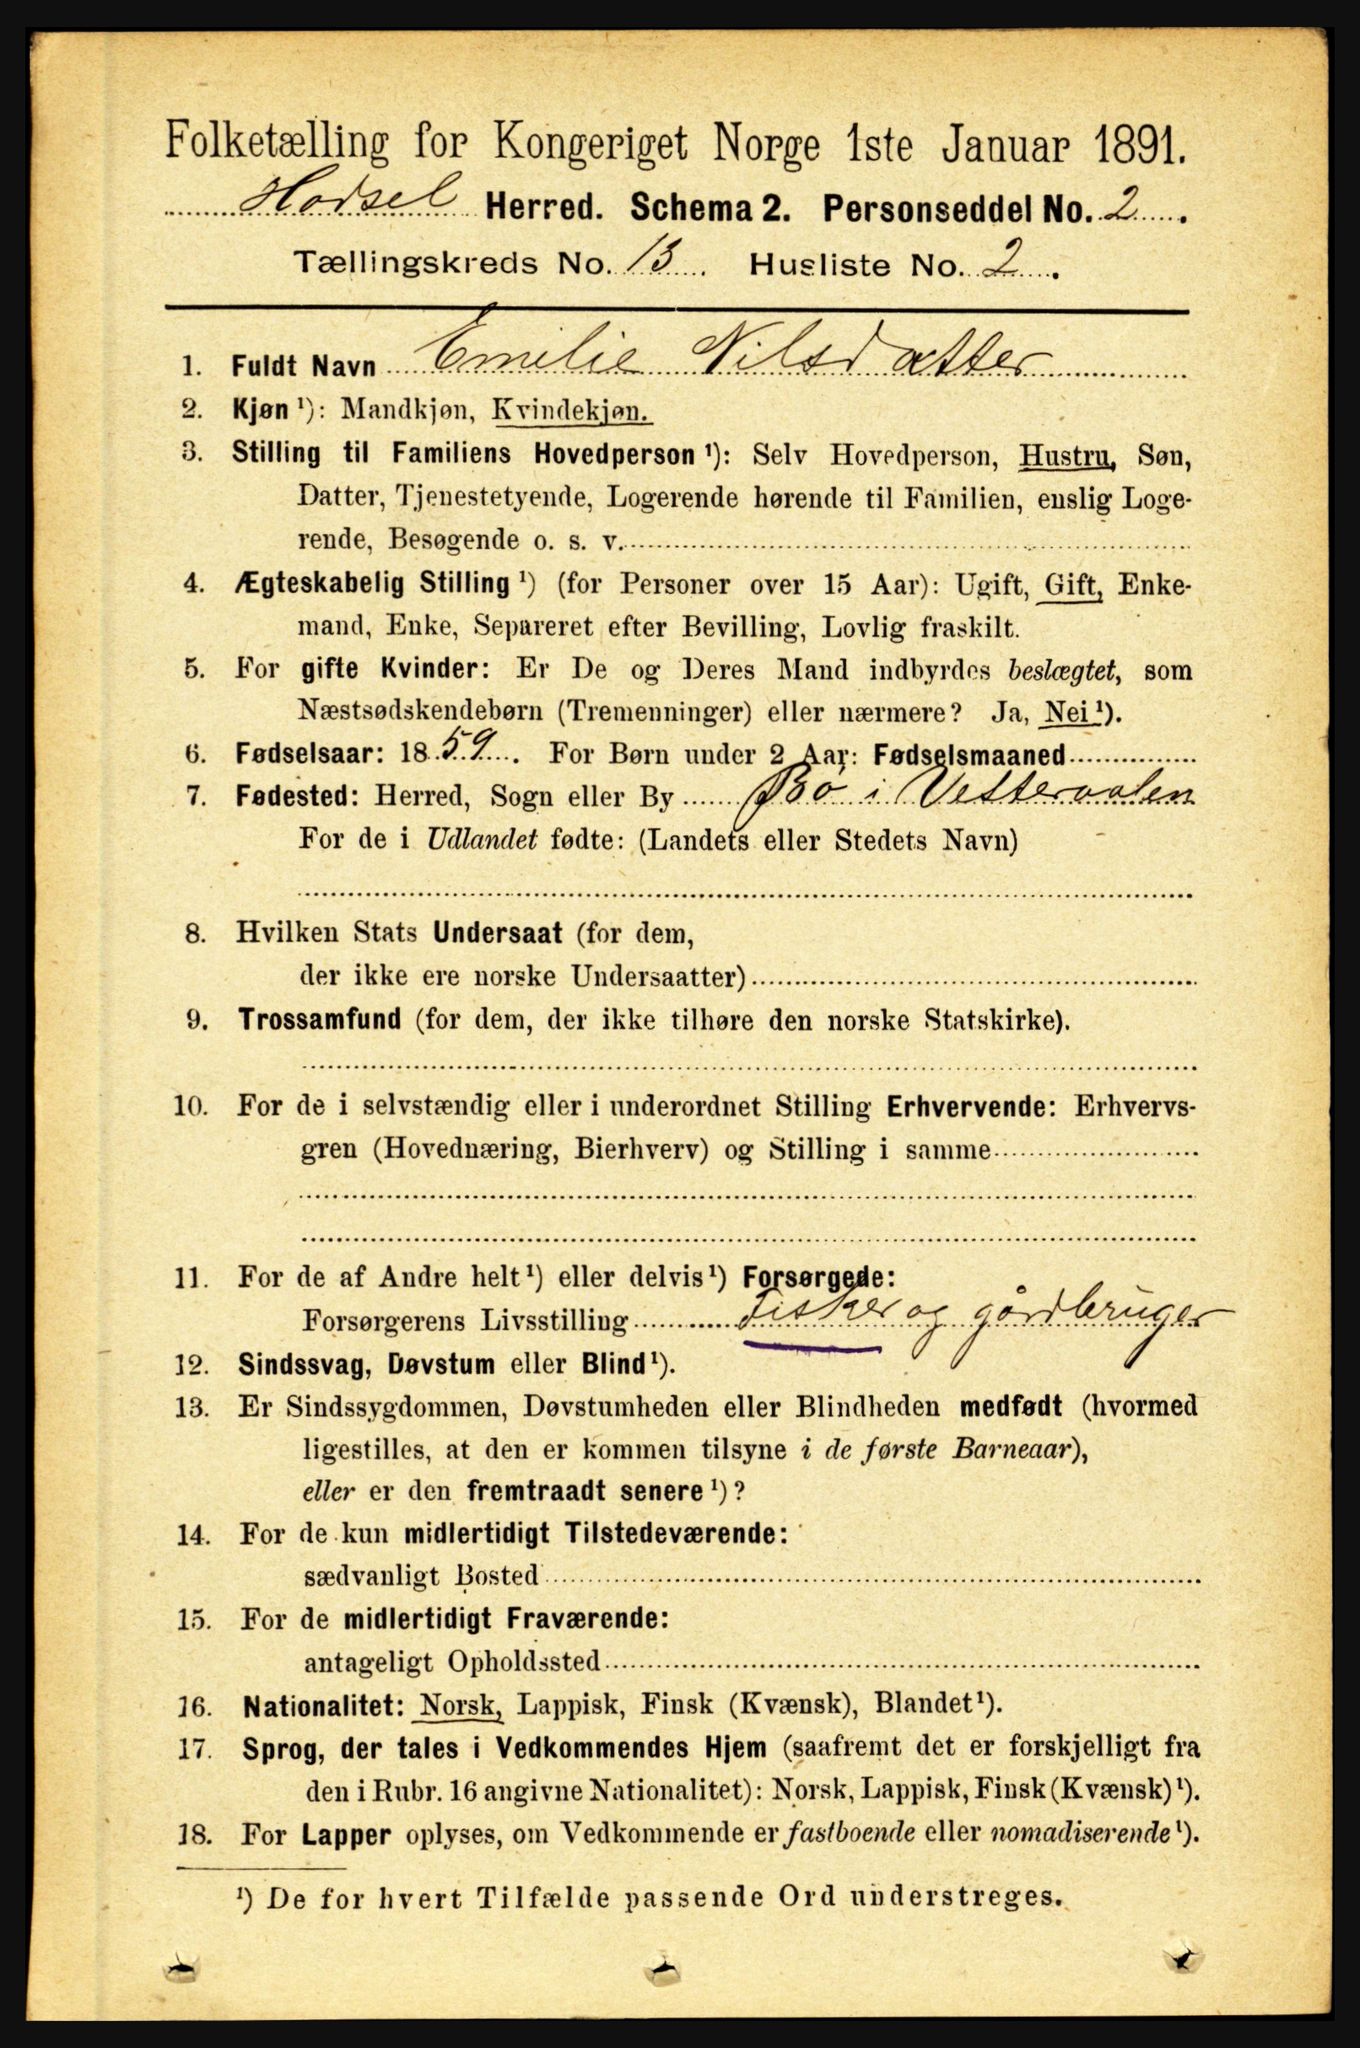 Folketælling for Kongeriget Norge 1ste Januar 1891.
Hadsel Herred. Schema 2. Personseddel No. 2.
Tællingskreds No. 13. Husliste No. 2.
1. Fuldt Navn Emilie Nilsdatter
2. Kjøn ¹): Mandkjøn, Kvindekjøn.
3. Stilling til Familiens Hovedperson ¹): Selv Hovedperson, Hustru, Søn,
Datter, Tjenestetyende, Logerende hørende til Familien, enslig Loge-
rende, Besøgende o. s. v.
4. Ægteskabelig Stilling ¹) (for Personer over 15 Aar): Ugift, Gift, Enke-
mand, Enke, Separeret efter Bevilling, Lovlig fraskilt.
5. For gifte Kvinder: Er De og Deres Mand indbyrdes beslægtet, som
Næstsødskendebørn (Tremenninger) eller nærmere? Ja, Nei ¹).
6. Fødselsaar: 1859. For Børn under 2 Aar: Fødselsmaaned
7. Fødested: Herred, Sogn eller By Bø i Vesteraalen
For de i Udlandet fødte: (Landets eller Stedets Navn)
8. Hvilken Stats Undersaat (for dem,
der ikke ere norske Undersaatter)
9. Trossamfund (for dem, der ikke tilhøre den norske Statskirke).
10. For de i selvstændig eller i underordnet Stilling Erhvervende: Erhvervs-
gren (Hovednæring, Bierhverv) og Stilling i samme
11. For de af Andre helt ¹) eller delvis ¹) Forsørgede:
Forsørgerens Livsstilling Fisker og gårdbruger
12. Sindssvag, Døvstum eller Blind ¹).
13. Er Sindssygdommen, Døvstumheden eller Blindheden medfødt (hvormed
ligestilles, at den er kommen tilsyne i de første Barneaar),
eller er den fremtraadt senere ¹)?
14. For de kun midlertidigt Tilstedeværende:
sædvanligt Bosted
15. For de midlertidigt Fraværende:
antageligt Opholdssted
16. Nationalitet: Norsk, Lappisk, Finsk (Kvænsk), Blandet ¹).
17. Sprog, der tales i Vedkommendes Hjem (saafremt det er forskjelligt fra
den i Rubr. 16 angivne Nationalitet): Norsk, Lappisk, Finsk (Kvænsk) ¹).
18. For Lapper oplyses, om Vedkommende er fastboende eller nomadiserende ¹).
¹) De for hvert Tilfælde passende Ord understreges.